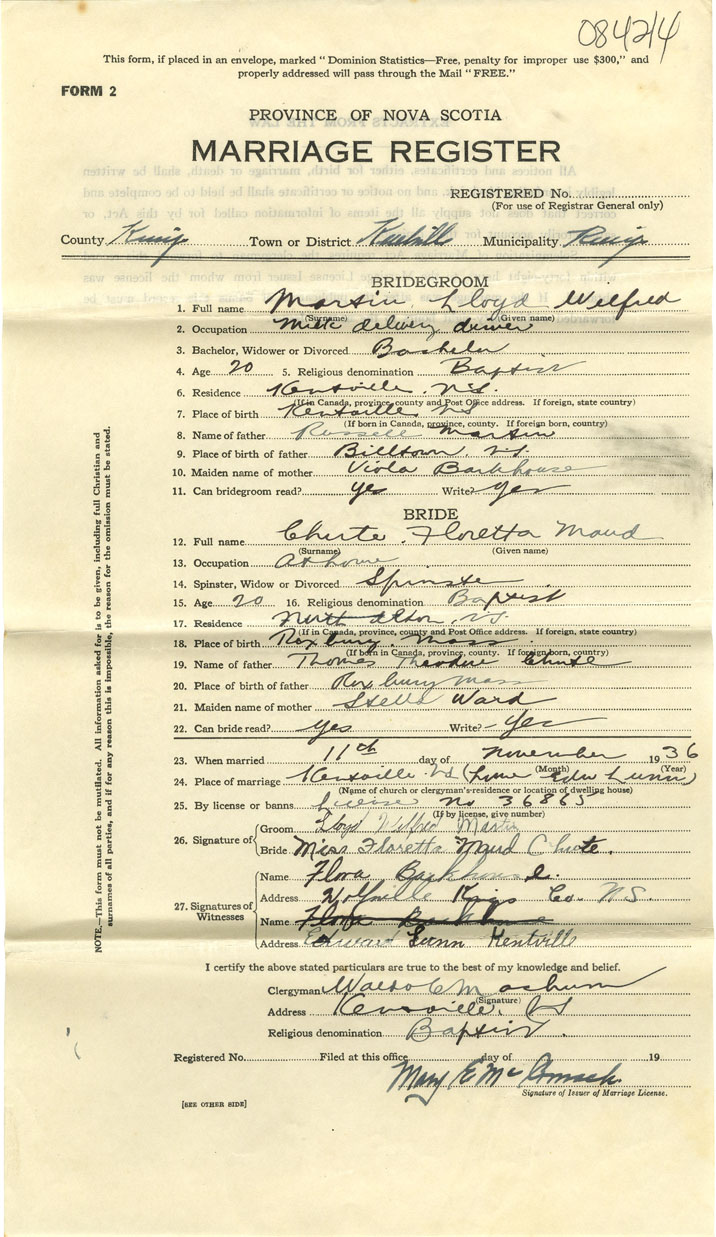 084214
This form, if placed in an envelope, marked "Dominion Statistics—Free, penalty for improper use $300," and
properly addressed will pass through the Mail "FREE."
FORM 2
PROVINCE OF NOVA SCOTIA
MARRIAGE REGISTER
REGISTERED No.
(For use of Registrar General only)
County Kings Town or District Kentville Municipality Kings
BRIDEGROOM
1. Full name Martin Lloyd Wilfred
(Surname) (Given name)
2. Occupation Milk delivery driver
3. Bachelor, Widower or Divorced Bachelor
4. Age 20 5. Religious denomination Baptist
6. Residence Kentville, N.S.
(If in Canada, province, county and Post Office address. If foreign, state country)
7. Place of birth Kentville NS
(If born in Canada, province, county. If foreign born, country)
8. Name of father Russell Martin
9. Place of birth of father Billtown, N.S.
10. Maiden name of mother Viola Barkhouse
11. Can bridegroom read? yes Write? yes
BRIDE
12. Full name Chute Floretta Maud
(Surname) (Given name)
13. Occupation At home
14. Spinster, Widow or Divorced Spinster
15. Age 20 16. Religious denomination Baptist
17. Residence North Alton, N.S.
(If in Canada, province, county and Post Office address. If foreign, state country)
18. Place of birth Roxbury, Mass.
(If born in Canada, province, county. If foreign born, country)
19. Name of father Thomas Theodore Chute
20. Place of birth of father Roxbury Mass
21. Maiden name of mother Stella Ward
22. Can bride read? Yes Write? Yes
23. When married 11th day of November 1936
(Month) (Year)
24. Place of marriage Kentville NS (home Edw Lunn)
(Name of church or clergyman's residence or location of dwelling house)
25. By license or banns License No 36865
(If by license, give number)
26. Signature of
Groom Lloyd Wilfred Martin
Bride Miss Floretta Maud Chute.
27. Signatures of Witnesses
Name Flora Barkhouse.
Address Wolfville Kings Co. N.S.
Name Flora Barkhouse
Address Edward Lunn Kentville
I certify the above stated particulars are true to the best of my knowledge and belief.
Clergyman
(Signature)
Address Kentville, NS
Religious denomination Baptist.
Registered No. Filed at this office day of 19
Mary E Mc
Signature of Issuer of Marriage License.
[SEE OTHER SIDE]
NOTE.—This form must not be mutilated. All information asked for is to be given, including full Christian and
surnames of all parties, and if for any reason this is impossible, the reason for the omission must be stated.